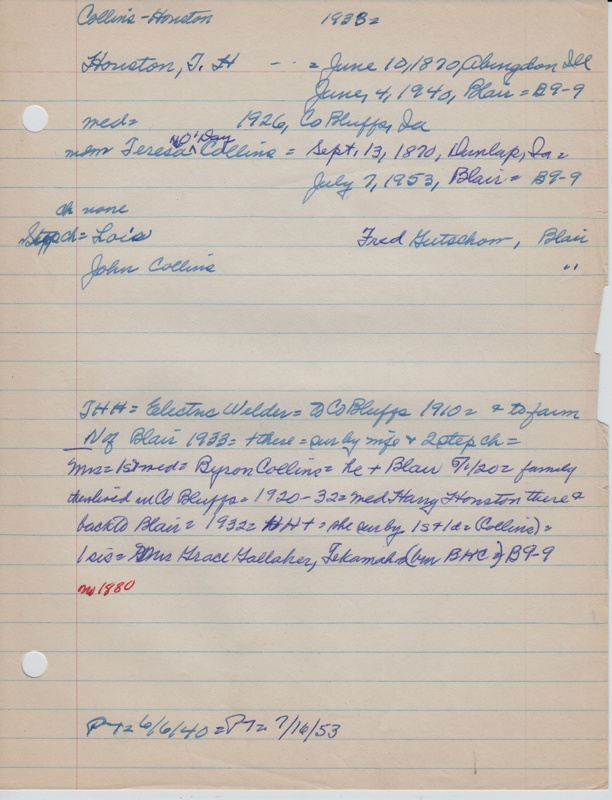 Collins-Houston 1933=
Houston, T. H - - = June 10, 1870, Abingdon Ill
June, 4, 1940, Blair = B9-9
med= 1926, Co Bluffs, Ia
O'Day
mdm Teresa Collins = Sept. 13, 1870, Dunlap, Ia =
July 7, 1953, Blair = B9-9
ch none
Step ch = Lois Fred Gutschow, Blair
John Collins "
THH = Electric Welder = to Co Bluffs 1910 = & to farm
N of Blair 1933 = + there = sur by wife & 2 step ch =
Mrs = 1st med = Byron Collins = he + Blair 5/1/20 = family
then lived in Co Bluffs = 1920-32 = med Harry Houston there &
back to Blair = 1932 = HH + = she sur by 1s + 1d = (Collins) =
1 sis = Mrs Grace Gallaher, Tekamah (bur BHC) B9-9
no 1880
P-T= 6/6/40 = PT= 7/16/53